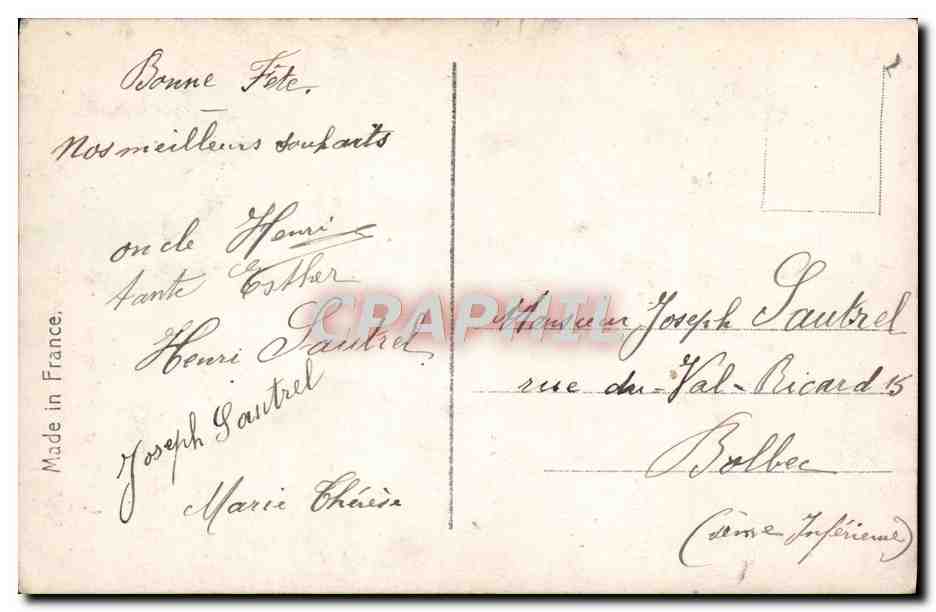 Bonne Fête.
Nos meilleurs souhaits
oncle Henri
tante Esther
Henri Sautrel
Joseph Sautrel
Marie Thérèse
Made in France.
CPAPHIL
Monsieur Joseph Sautrel
rue du Val-Ricard 15
Bolbec
(Seine Inférieure)